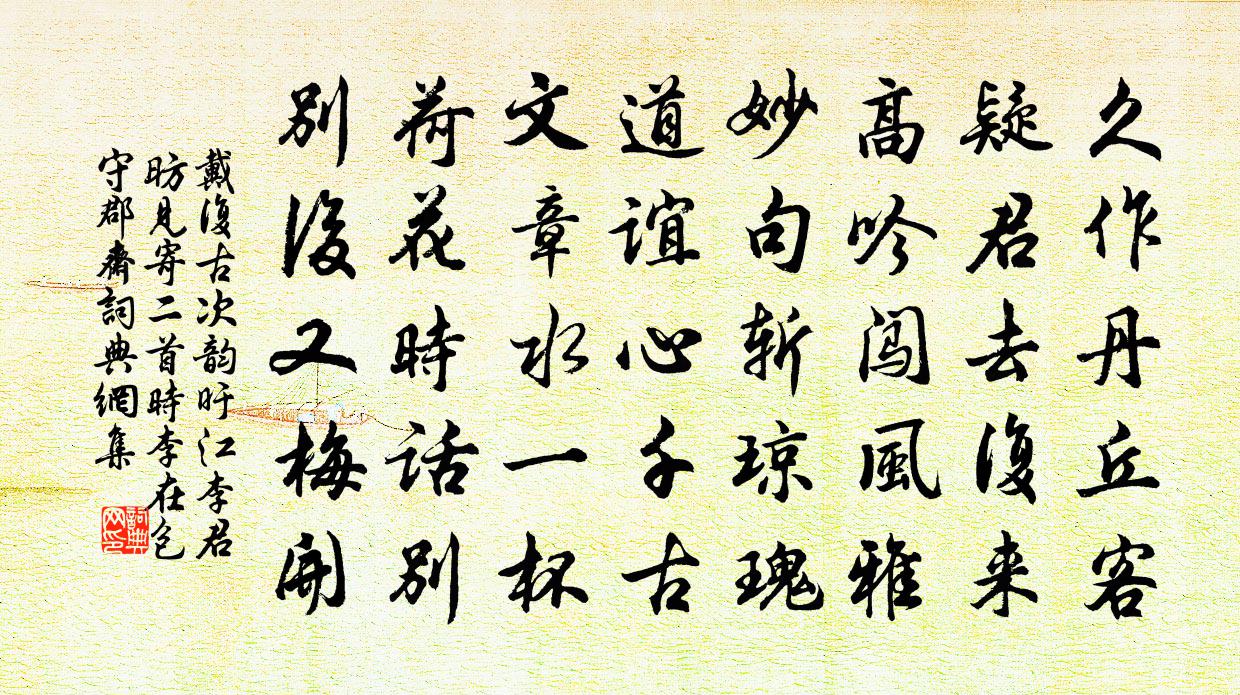 久作丹丘客
疑君去復来
高吟闯風雅
妙句斩琼瑰
道谊心千古
文章水一杯
荷花時話别
别後又梅開
戴復古次韵旴江李君
昉見寄二首時李在包
守郡齋詞典網集
詞典网印